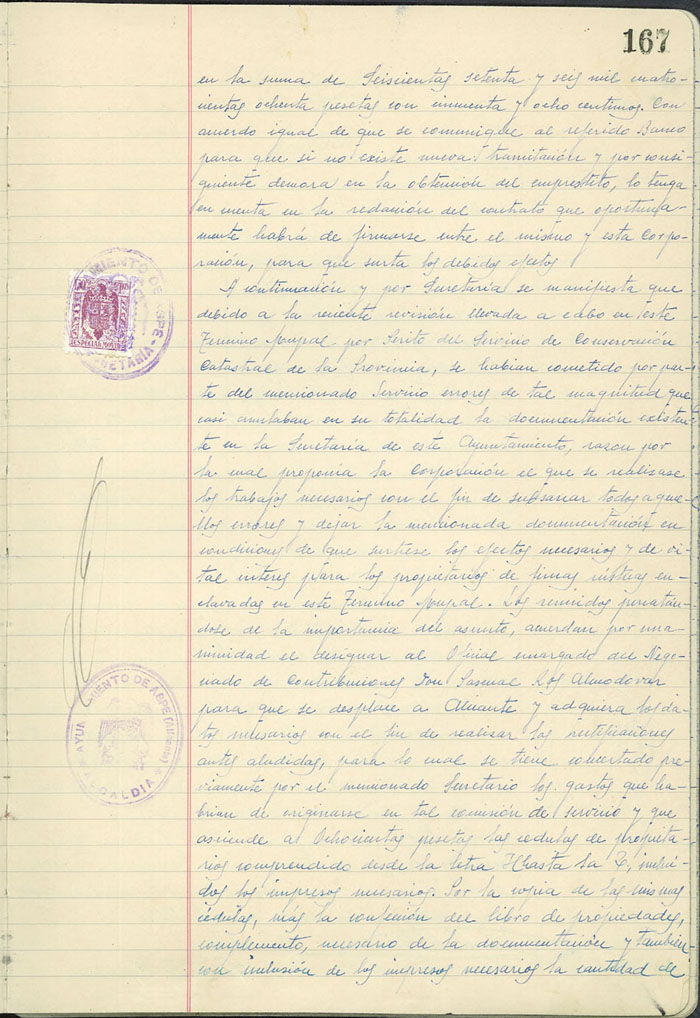 167
en la suma de Seiscientas setenta y seis mil cuatro-
cientas ochenta pesetas con cincuenta y ocho centimos. Con
acuerdo igual de que se comunique al referido Banco
para que si no existe nueva tramitación y por consi-
guiente demora en la obtención del emprestito, lo tenga
en cuenta en la redacción del contrato que oportuna-
mente habrá de firmarse entre el mismo y esta Corpo-
ración, para que surta los debidos efectos
A continuación y por Secretaría se manifiesta que
debido a la reciente revisión llevada a cabo en este
Termino Mupal por Perito del Servicio de Conservación
Catastral de la Provincia, se habian cometido por par-
te del mencionado Servicio errores de tal magnitud que
casi anulaban en su totalidad la documentación existen-
te en la Secretaria de este Ayuntamiento, razon por
la cual proponia la Corporación el que se realizase
los trabajos necesarios con el fin de subsanar todos aque-
llos errores y dejar la mencionada documentación en
condiciones de que surtiese los efectos necesarios y de vi-
tal interes para los propietarios de fincas rústicas en-
clavadas en este Termino Mupal. Los reunidos percatán-
dose de la importancia del asunto, acuerdan por una-
nimidad el designar al Oficial encargado del Nego-
ciado de Contribuciones Don Pascual Almodovar
para que se desplace a Alicante y adquiera los da-
tos necesarios con el fin de realizar las rectificaciones
antes aludidas, para lo cual se tiene concertado pre-
viamente por el mencionado Secretario los gastos que ha-
brian de originarse en tal comisión de servicio y que
asciende a Ochocientas pesetas las cedulas de propieta-
rios comprendido desde la letra H hasta la Z, inclui-
dos los impresos necesarios. Por la copia de las mismas
cedulas, más la confección del libro de propiedades,
complemento, necesario de la documentación y tambien
con inclusión de los impresos necesarios la cantidad de
AYUNTAMIENTO DE ASPE
SECRETARIA
50 CTS
ESPECIAL MOVIL
AYUNTAMIENTO DE ASPE (Alicante)
ALCALDIA